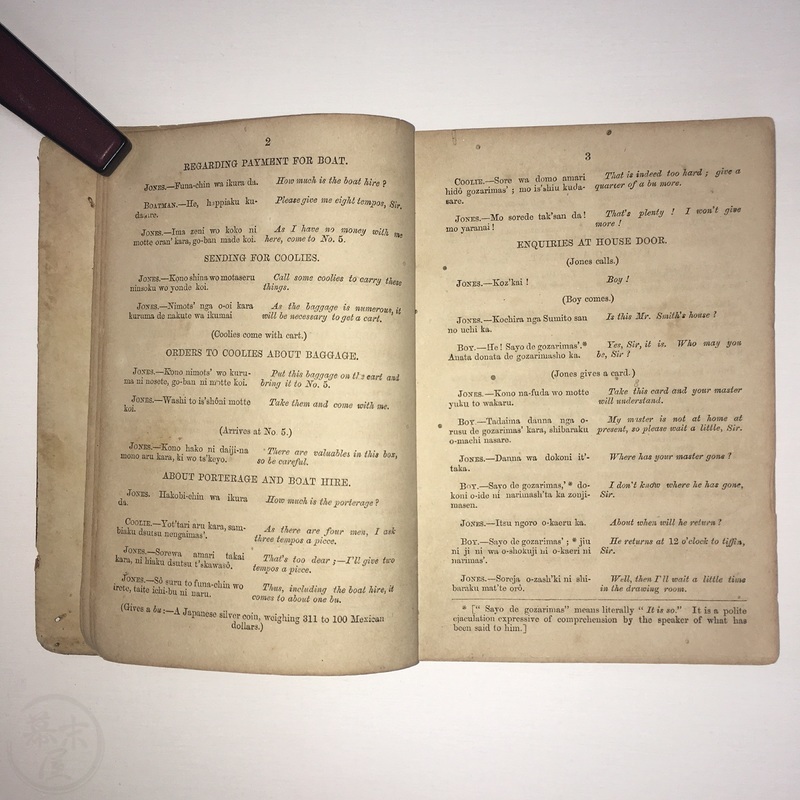 2
REGARDING PAYMENT FOR BOAT.
JONES.—Funa-chin wa ikura da.
How much is the boat hire?
BOATMAN.—He, happiaku ku-
dasare.
Please give me eight tempos, Sir.
JONES.—Ima zeni wo koko ni
motte oran' kara, go-ban made koi.
As I have no money with me
here, come to No. 5.
SENDING FOR COOLIES.
JONES.—Kono shina wo motaseru
ninsoku wo yonde koi.
Call some coolies to carry these
things.
JONES.—Nimots' nga o-oi kara
kuruma de nakute wa ikumai
As the baggage is numerous, it
will be necessary to get a cart.
(Coolies come with cart.)
ORDERS TO COOLIES ABOUT BAGGAGE.
JONES.—Kono nimots' wo kuru-
ma ni nosete, go-ban ni motte koi.
Put this baggage on the cart and
bring it to No. 5.
JONES.—Washi to is'shôni motte
koi.
Take them and come with me.
(Arrives at No. 5.)
JONES.—Kono hako ni daiji-na
mono aru kara, ki wo ts'keyo.
There are valuables in this box,
so be careful.
ABOUT PORTERAGE AND BOAT HIRE.
JONES. Hakobi-chin wa ikura
da.
How much is the porterage?
COOLIE.—Yot'tari aru kara, sam-
biaku dsutsu nengaimas'.
As there are four men, I ask
three tempos a piece.
JONES.—Sorewa amari takai
kara, ni hiaku dsutsu t'skawasô.
That's too dear;—I'll give two
tempos a piece.
JONES.—Sô suru to funa-chin wo
irete, taite ichi-bu ni naru.
Thus, including the boat hire, it
comes to about one bu.
(Gives a bu:—A Japanese silver coin, weighing 311 to 100 Mexican
dollars.)
3
COOLIE.—Sore wa domo amari
hidô gozarimas'; mo is'shiu kuda-
sare.
That is indeed too hard; give a
quarter of a bu more.
JONES.—Mo sorede tak'san da!
mo yaranai!
That's plenty! I won't give
more!
ENQUIRIES AT HOUSE DOOR.
(Jones calls.)
JONES.—Koz'kai!
Boy!
(Boy comes.)
JONES.—Kochira nga Sumito san
no uchi ka.
Is this Mr. Smith's house?
BOY.—He! Sayo de gozarimas'.*
Anata donata de gozarimasho ka.
Yes, Sir, it is. Who may you
be, Sir?
(Jones gives a card.)
JONES.—Kono na-fuda wo motte
yuku to wakaru.
Take this card and your master
will understand.
BOY.—Tadaima danna nga o-
rusu de gozarimas' kara, shibaraku
o-machi nasare.
My master is not at home at
present, so please wait a little, Sir.
JONES.—Danna wa dokoni it'-
taka.
Where has your master gone?
BOY.—Sayo de gozarimas,'* do-
koni o-ide ni narimash'ta ka zonji-
masen.
I don't know where he has gone,
Sir.
JONES.—Itsu ngoro o-kaeru ka.
About when will he return?
BOY.—Sayo de gozarimas'; * jiu
ni ji ni wa o-shokuji ni o-kaeri ni
narimas'.
He returns at 12 o'clock to tiffin,
Sir.
JONES.—Soreja o-zash'ki ni shi-
baraku mat'te orô.
Well, then I'll wait a little time
in the drawing room.
* [" Sayo de gozarimas" means literally " It is so." It is a polite
ejaculation expressive of comprehension by the speaker of what has
been said to him.]
幕末屋